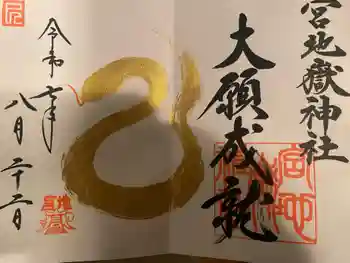 宮地嶽神社
大願成就
令和七年
八月二十二日